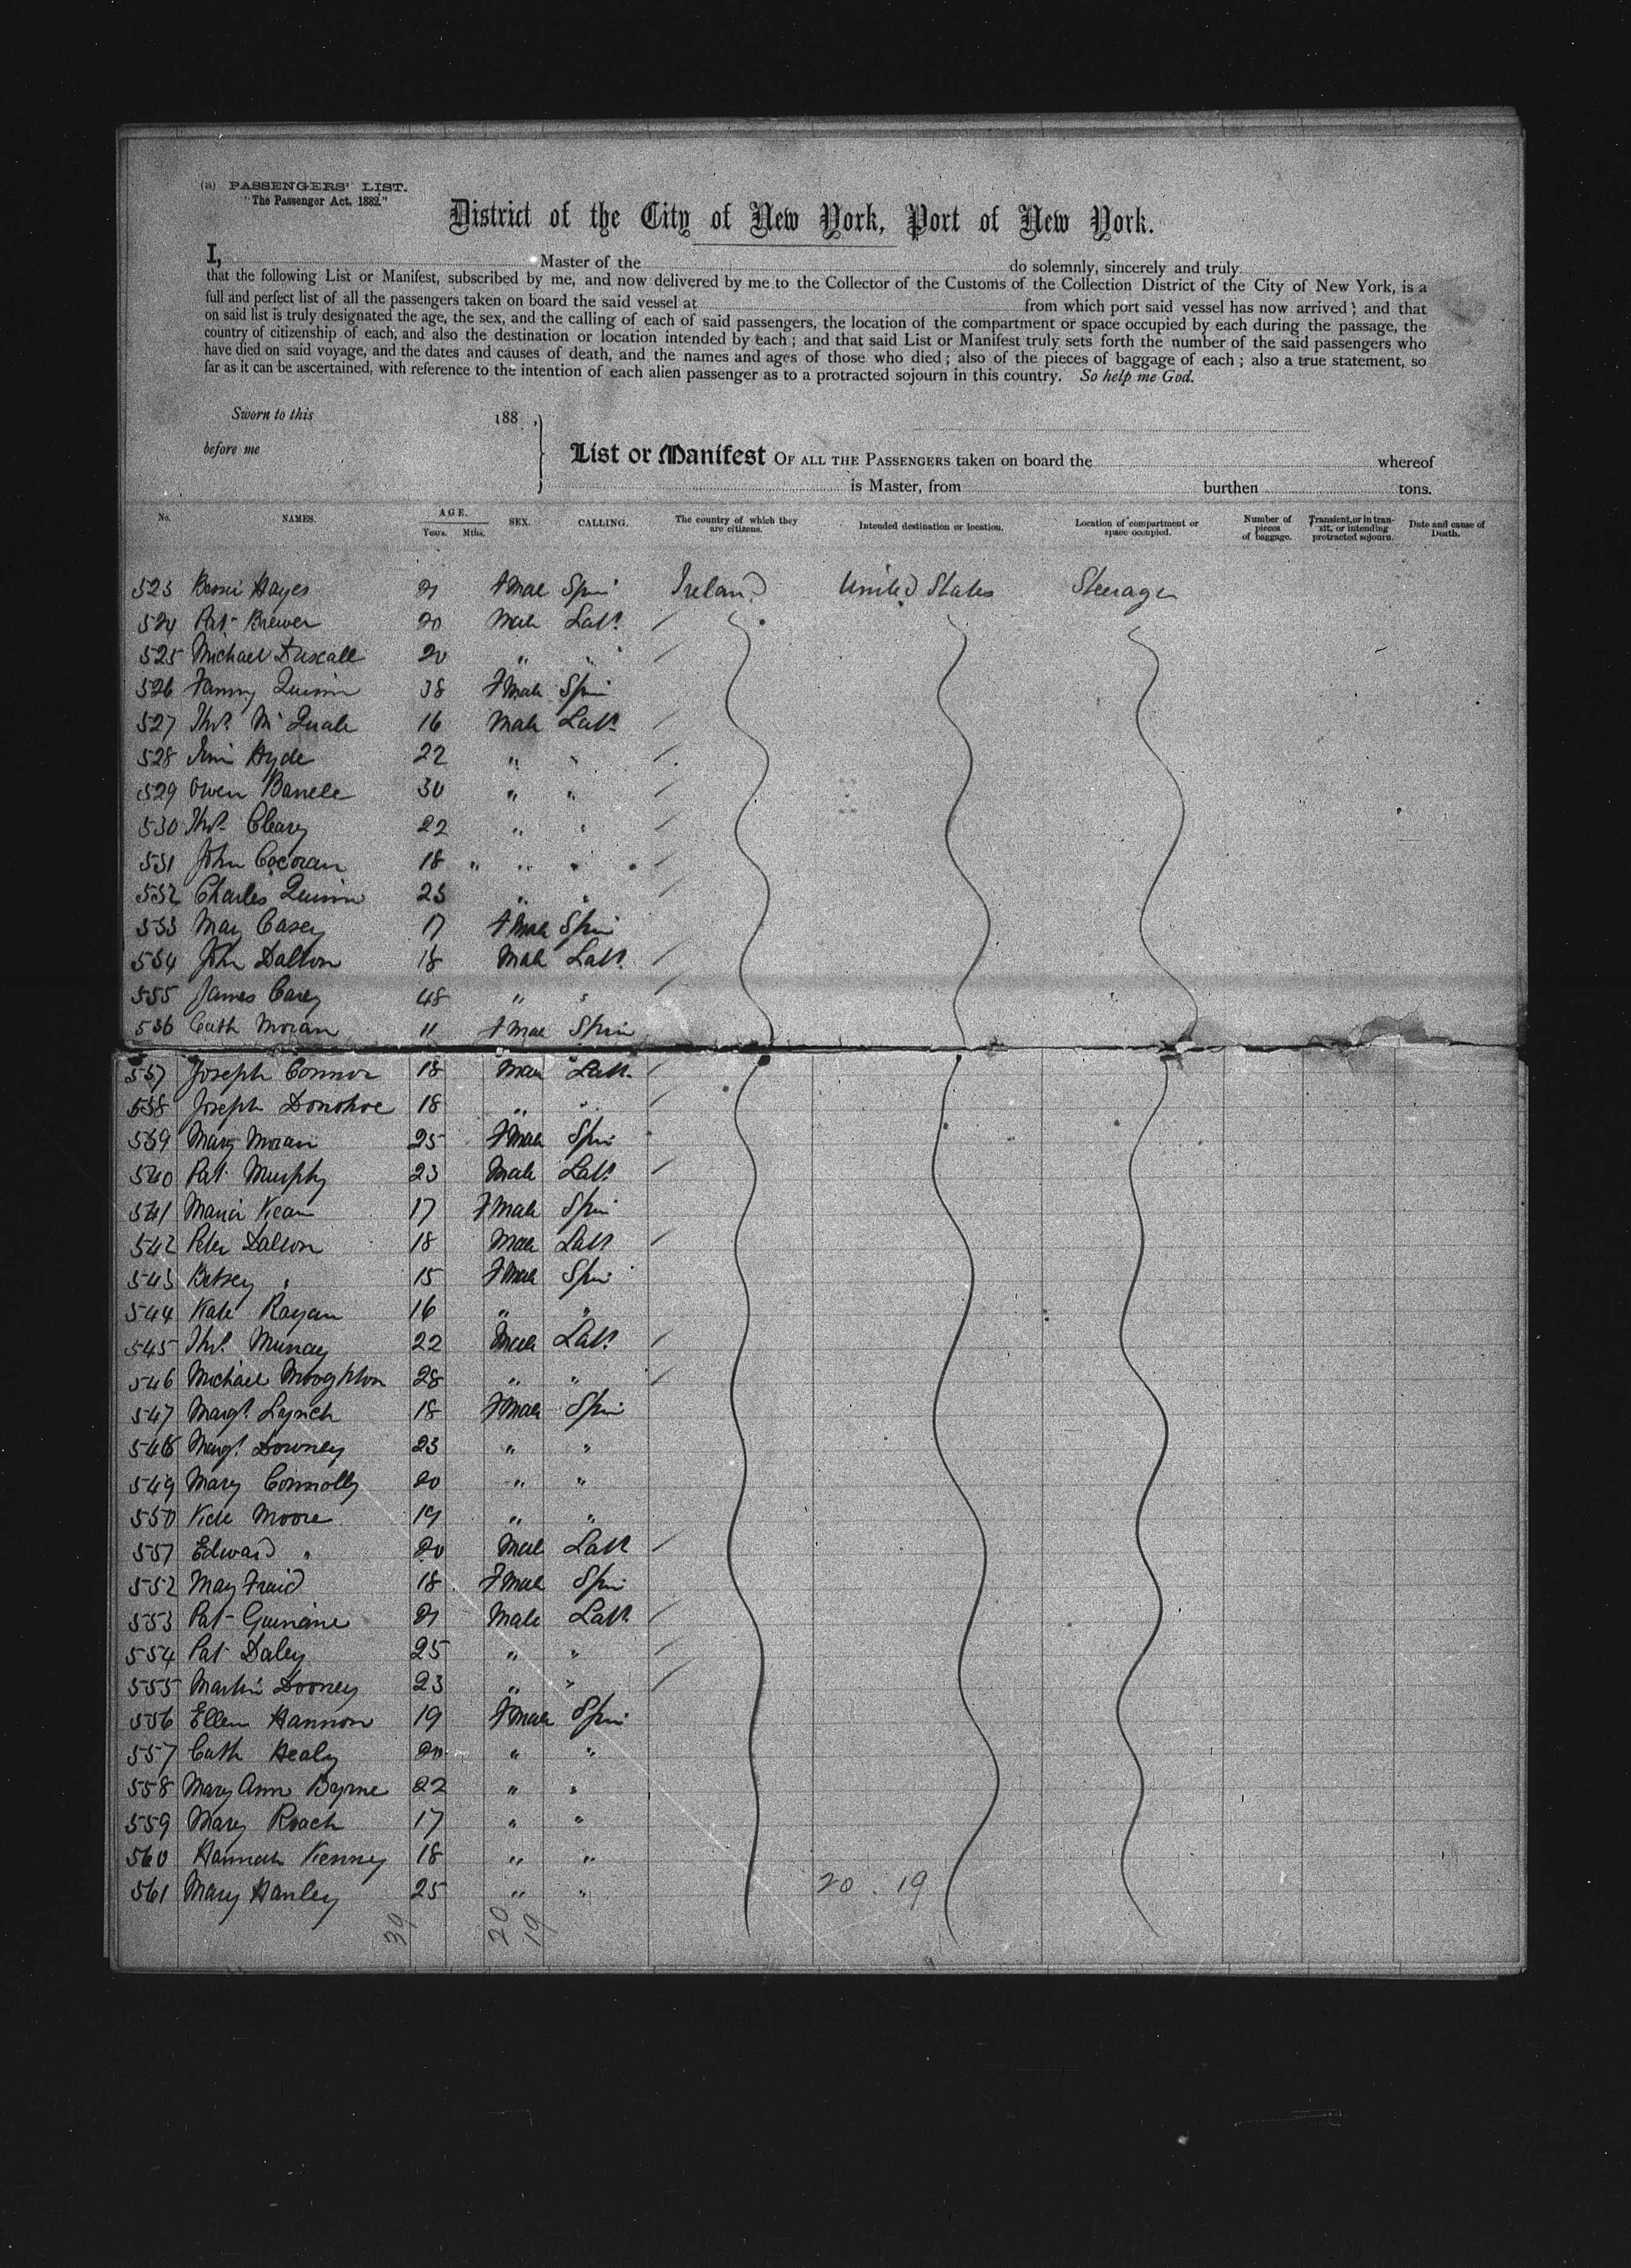 (a) PASSENGERS' LIST.
"The Passenger Act, 1882."
District of the City of New York, Port of New York.
I, Master of the do solemnly, sincerely and truly
that the following List or Manifest, subscribed by me, and now delivered by me to the Collector of the Customs of the Collection District of the City of New York, is a
full and perfect list of all the passengers taken on board the said vessel at from which port said vessel has now arrived; and that
on said list is truly designated the age, the sex, and the calling of each of said passengers, the location of the compartment or space occupied by each during the passage, the
country of citizenship of each, and also the destination or location intended by each; and that said List or Manifest truly sets forth the number of the said passengers who
have died on said voyage, and the dates and causes of death, and the names and ages of those who died; also of the pieces of baggage of each; also a true statement, so
far as it can be ascertained, with reference to the intention of each alien passenger as to a protracted sojourn in this country. So help me God.
Sworn to this 188 ,
before me
List or Manifest OF ALL THE PASSENGERS taken on board the whereof
is Master, from burthen tons.
No. NAMES. AGE. Years. Mths. SEX. CALLING. The country of which they are citizens. Intended destination or location. Location of compartment or space occupied. Number of pieces of baggage. Transient, or in transit, or intending protracted sojourn. Date and cause of Death.
523 Bessie Hayes 21 Fmal Spin Ireland United States Steerage
524 Pat Brewer 20 Male Labr
525 Michael Driscall 20 " "
526 Fanny Quinn 38 Fmale Spin
527 Thos McQuale 16 Male Labr
528 Hyde 22 " "
529 Owen 30 " "
530 Thos Cleary 22 " "
531 John Cocoran 18 " " "
532 Charles Quinn 23 " "
533 Mary Casey 17 Fmale Spin
534 John Dalton 18 Male Labr
535 James Carey 48 " "
536 Cath Moran 11 Fmal Spin
537 Joseph Connor 18 Male Labr
538 Joseph Donohoe 18 " "
539 Mary Moran 25 Fmale Spin
540 Pat Murphy 23 Male Labr
541 Maria Kean 17 Fmale Spin
542 Peter Dalton 18 Male Labr
543 Betsey " 15 Fmale Spin
544 Kate Ragan 16 " "
545 Thos Murray 22 Male Labr
546 Michael 28 " "
547 Margt Lynch 18 Fmale Spin
548 Margt Downey 23 " "
549 Mary Connolly 20 " "
550 Kate Moore 19 " "
551 Edward " 20 Male Labr
552 Mary Fraid 18 Fmale Spin
553 Pat Guinane 21 Male Labr
554 Pat Daley 25 " "
555 Martin Dooney 23 " "
556 Ellen Hannon 19 Fmale Spin
557 Cath Healy 20 " "
558 Mary Ann Byrne 22 " "
559 Mary Roach 17 " "
560 Hannah Kenney 18 " "
561 Mary Hanley 25 " "
20 . 19
39 20 19